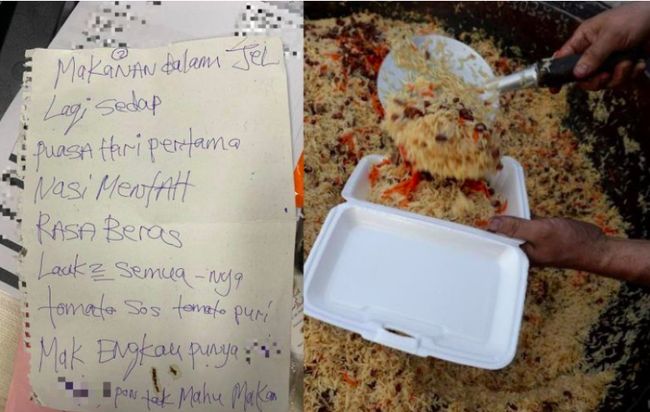 Makanan dalam Jel
Lagi Sedap
puasa Hari pertama
Nasi Mentah
RASA Beras
Lauk2 semua-nya
tomato sos tomato puri
Mak Engkau punya
pon tak Mahu Makan